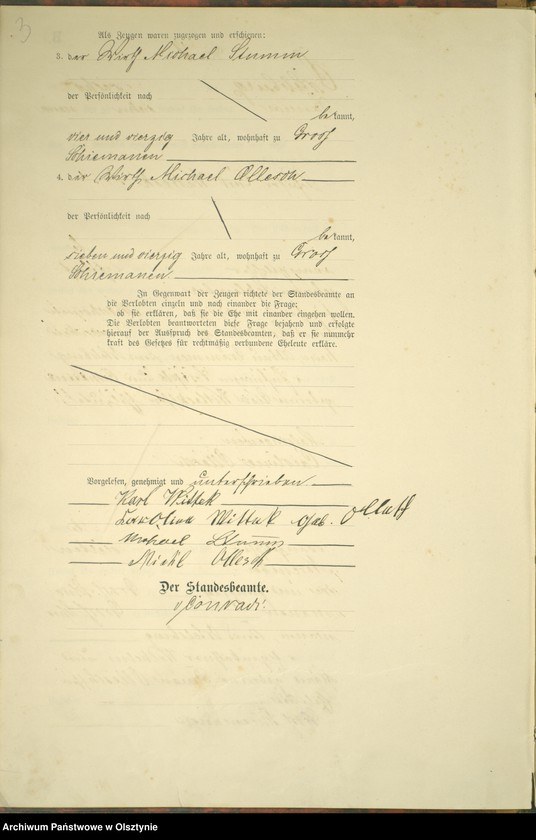 3
Als Zeugen waren zugezogen und erschienen:
3. der Wirth Michael Stumm
der Persönlichkeit nach
bekannt,
vier und vierzig Jahre alt, wohnhaft zu Groß
Schiemanen
4. der Wirth Michael Ollesch
der Persönlichkeit nach
bekannt,
sieben und vierzig Jahre alt, wohnhaft zu Groß
Schiemanen
In Gegenwart der Zeugen richtete der Standesbeamte an
die Verlobten einzeln und nach einander die Frage:
ob sie erklären, daß sie die Ehe mit einander eingehen wollen.
Die Verlobten beantworteten diese Frage bejahend und erfolgte
hierauf der Ausspruch des Standesbeamten, daß er sie nunmehr
kraft des Gesetzes für rechtmäßig verbundene Eheleute erkläre.
Vorgelesen, genehmigt und unterschrieben
Karl Wittek
Wittek geb.
Michael Stumm
Michl Ollesch
Der Standesbeamte.
Conradi
Archiwum Państwowe w Olsztynie